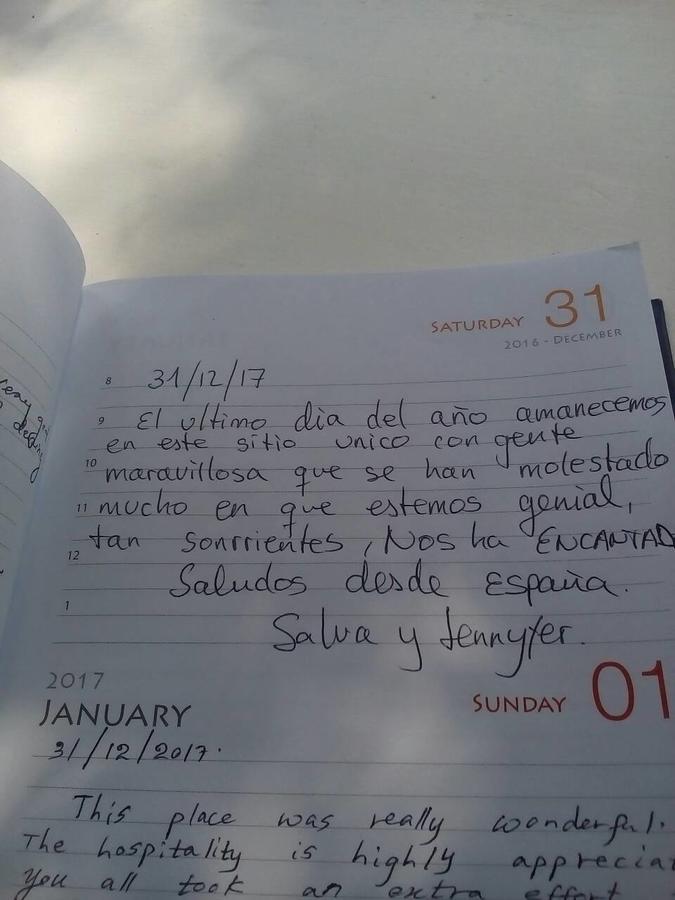 SATURDAY 31
2016 - DECEMBER
8 31/12/17
9 El ultimo dia del año amanecemos
en este sitio unico con gente
10 maravillosa que se han molestado
11 mucho en que estemos genial,
tan sonrrientes, Nos ha ENCANTAD
12
Saludos desde España.
1
Salva y Jennyfer.
2017
JANUARY
SUNDAY 01
31/12/2017.
This place was really wonderful.
The hospitality is highly apprecia
You all took an extra effort